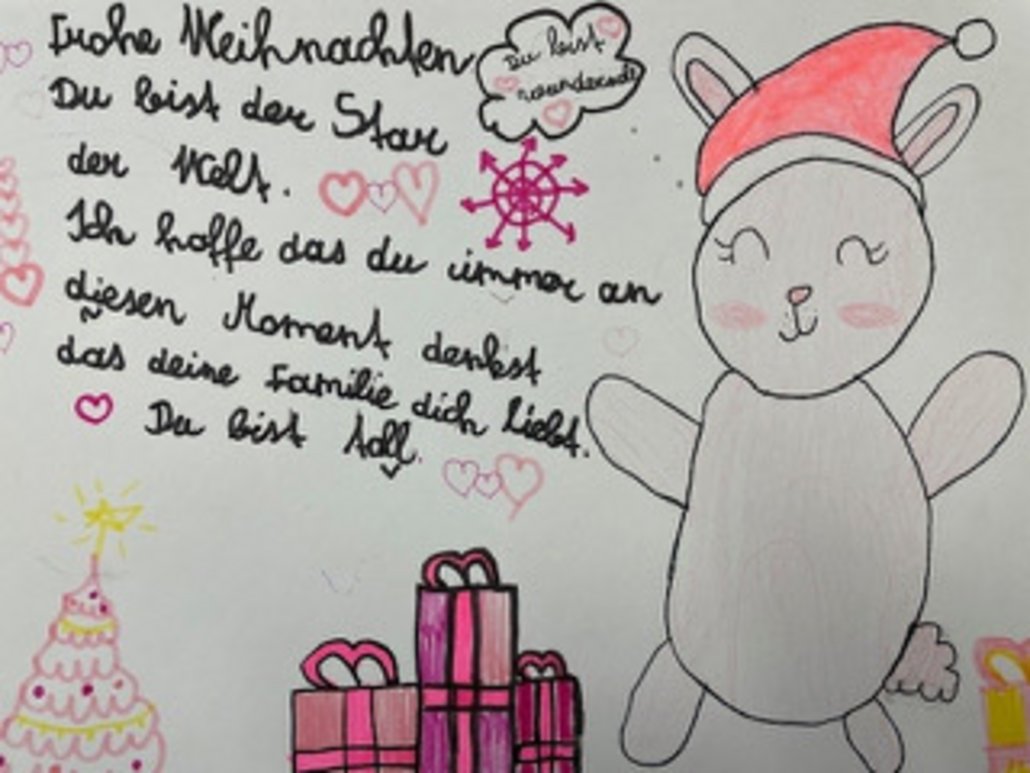 Frohe Weihnachten
Du bist der Star
der Welt.
Ich hoffe das du immer an
diesen Moment denkst
das deine Familie dich liebt.
Du bist toll.
Du bist